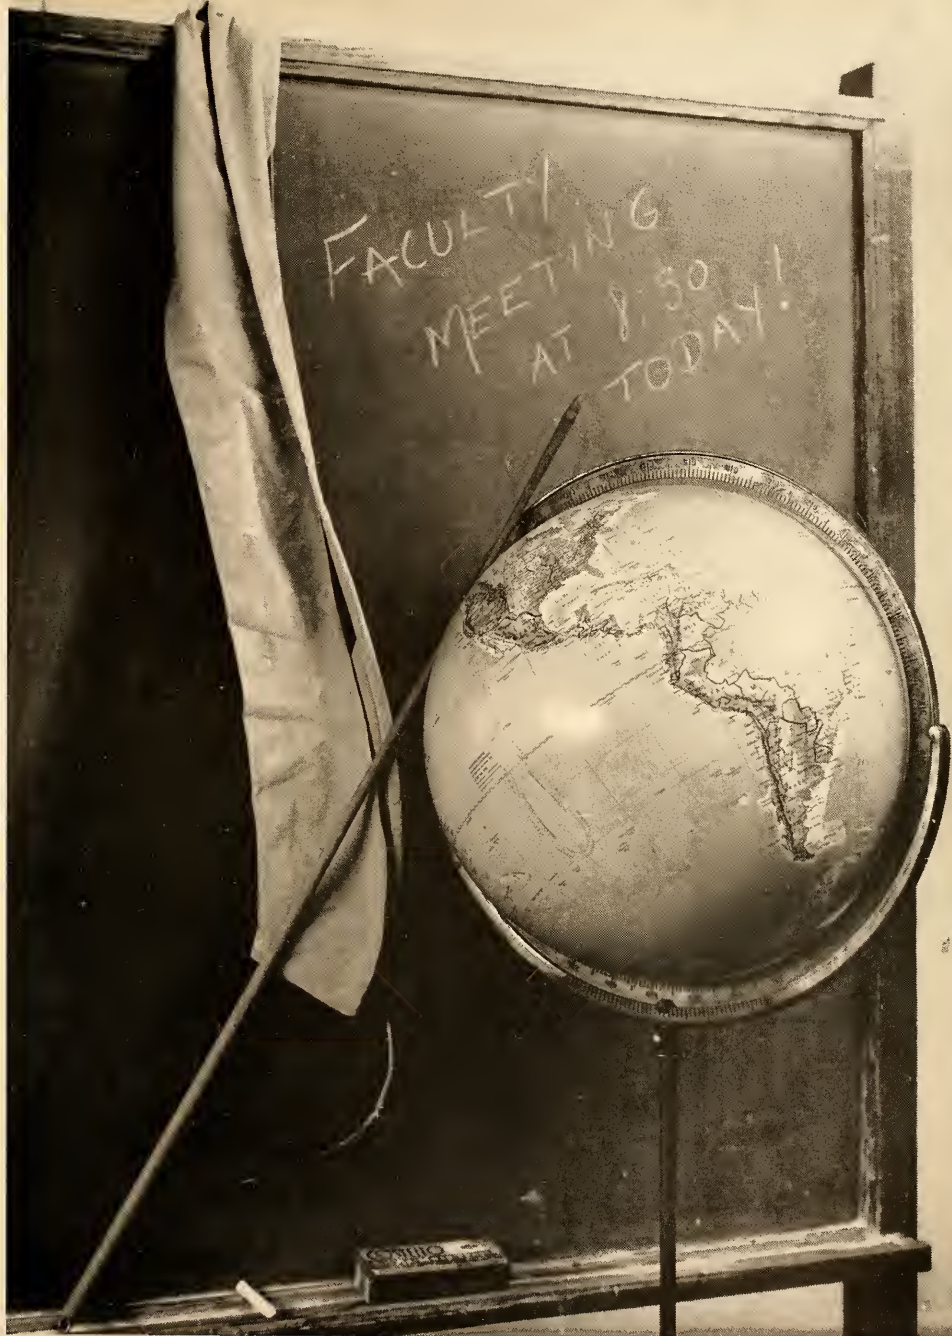 FACULTY
MEETING
AT 8:30
TODAY!